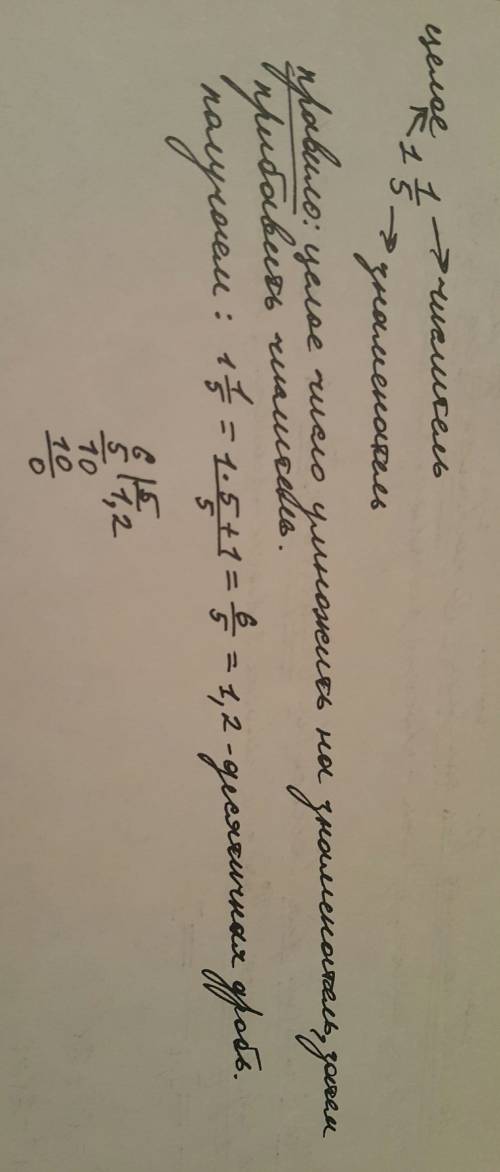 целое 1 1/5 → числитель
→ знаменатель
правило: целое число умножить на знаменатель, затем
прибавить числитель.
получаем: 1 1/5 = 1·5+1/5 = 6/5 = 1,2 - десятичная дробь.
6 | 5
5 1,2
10
10
0